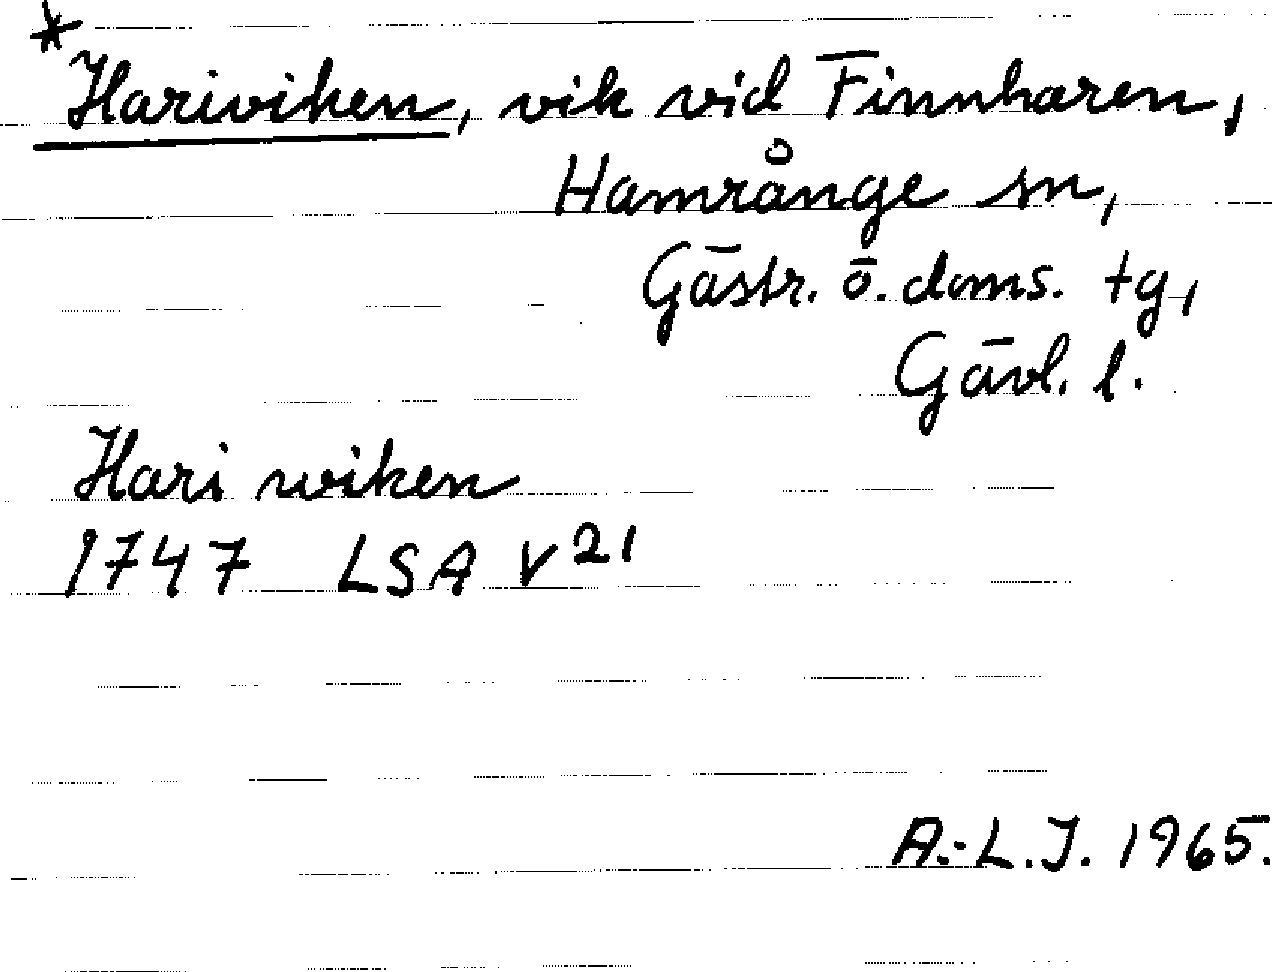 *
Hariviken, vik vid Finnharen,
Hamrånge sn,
Gästr. ö. doms. tg,
Gävl. l.
Hari wiken
1747 LSA V21
A.-L.J. 1965.